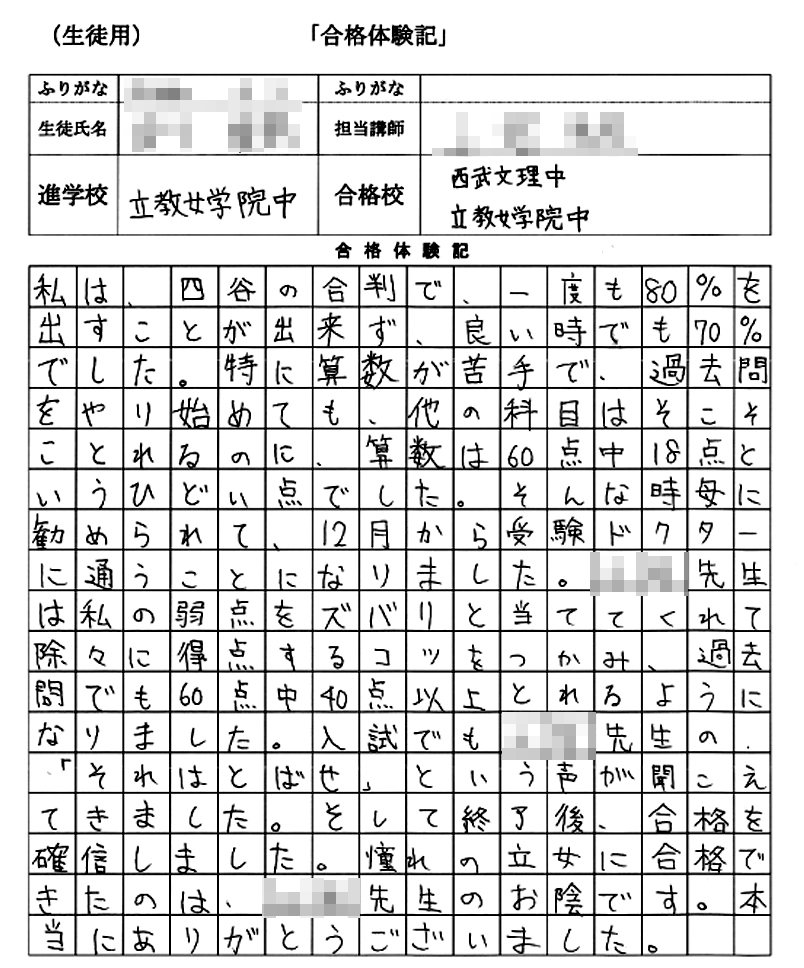 （生徒用）　「合格体験記」
ふりがな　ふりがな
生徒氏名　担当講師
進学校　立教女学院中　合格校　西武文理中
立教女学院中
合格体験記
私は、四谷の合判で、一度も80%を
出すことが出来ず、良い時でも70%
でした。特に算数が苦手で、過去問
をやり始めても、他の科目はそこそ
ことれるのに、算数は60点中18点と
いうひどい点でした。そんな時母に
勧められて、12月から受験ドクター
に通うことになりました。先生
は私の弱点をズバリと当ててくれて
除々に得点するコツをつかみ、過去
問でも60点中40点以上とれるように
なりました。入試でも先生の、
「それはとばせ」という声が聞こえ
てきました。そして終了後、合格を
確信しました。憧れの立女に合格で
きたのは、先生のお陰です。本
当にありがとうございました。